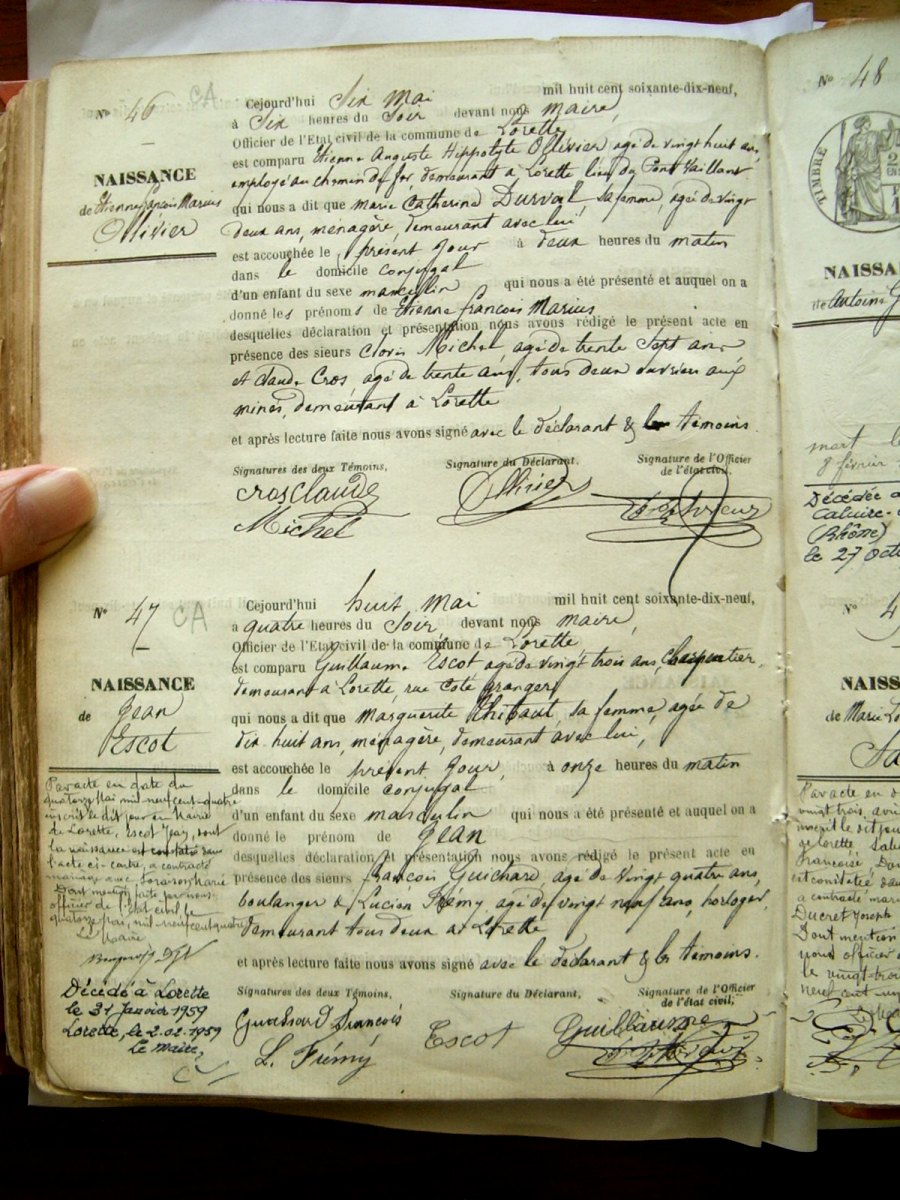 N° 46 CA
NAISSANCE
de Etienne François Marius
Ollivier
Cejourd'hui Six Mai mil huit cent soixante-dix-neuf,
à Six heures du Soir devant nous Maire,
Officier de l'Etat civil de la commune de Lorette
est comparu Etienne Auguste Hippolyte Ollivier agé de vingt huit ans,
employé au chemin de fer demeurant à Lorette lieu du Pont Vaillant
qui nous a dit que marie Catherine Durval sa femme, agée de vingt
deux ans, ménagère, demeurant avec lui,
est accouchée le présent Jour à deux heures du matin
dans le domicile conjugal
d'un enfant du sexe masculin qui nous a été présenté et auquel on a
donné les prénoms de Etienne François Marius
desquelles déclaration et présentation nous avons rédigé le présent acte en
présence des sieurs Clovis Michel agé de trente Sept ans
et Claude Cros, agé de trente ans, tous deux ouvriers aux
mines, demeurant à Lorette
et après lecture faite nous avons signé avec le déclarant & les témoins.
Signatures des deux Témoins,
Signature du Déclarant,
Signature de l'Officier
de l'état civil,
cros claude
Michel
Ollivier
N° 47 CA
NAISSANCE
de Jean
Escot
Cejourd'hui huit Mai mil huit cent soixante-dix-neuf,
a quatre heures du Soir devant nous Maire,
Officier de l'Etat civil de la commune de Lorette
est comparu Guillaume Escot agé de vingt trois ans Charpentier,
demeurant à Lorette, rue Cote granger,
qui nous a dit que Marguerite Thibaut, sa femme, agée de
dix huit ans, ménagère, demeurant avec lui,
est accouchée le présent Jour, à onze heures du matin
dans le domicile conjugal
d'un enfant du sexe masculin qui nous a été présenté et auquel on a
donné le prénom de Jean
desquelles déclaration et présentation nous avons rédigé le présent acte en
présence des sieurs François Guichard, agé de vingt quatre ans,
boulanger & Lucien Frémy agé de vingt neuf ans, horloger,
demeurant tous deux à Lorette
et après lecture faite nous avons signé avec le déclarant & les témoins.
Signatures des deux Témoins,
Signature du Déclarant,
Signature de l'Officier
de l'état civil,
François
L. Frémy
Escot Guillaume
Par acte en date du
quatorze Mai mil neuf cent quatre
inscrit le dit jour en Mairie
de Lorette, Escot Jean, dont
la naissance est constatée dans
l'acte ci-contre, a contracté
mariage avec Marie
Dont mention faite par nous
officier de l'Etat civil le
quatorze Mai, mil neuf cent quatre
Le Maire
Décédé à Lorette
le 31 Janvier 1959
Lorette, le 2.02.1959
Le Maire,
N° 48
TIMBRE
2
NAISSA
de Antoine G
mort le
9 février
Décédée à
Caluire-
(Rhône)
le 27 octo
N° 4
NAISS
de Marie Lo
Sa
Par acte en d
vingt trois, avri
inscrit le dit jou
de Lorette
Françoise,
est constatée dan
a contracté mari
Ducret Joseph
Dont mention
nous officier
le vingt-trois
neuf cent